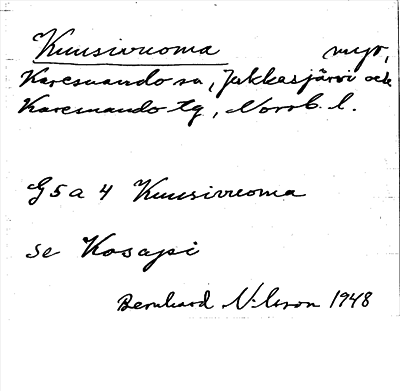 Kuusivuoma myr,
Karesuando sn, Jukkasjärvi och
Karesuando tg, Norrb. l.
G5a 4 Kuusivuoma
se Kosapi
Bernhard Nilsson 1948